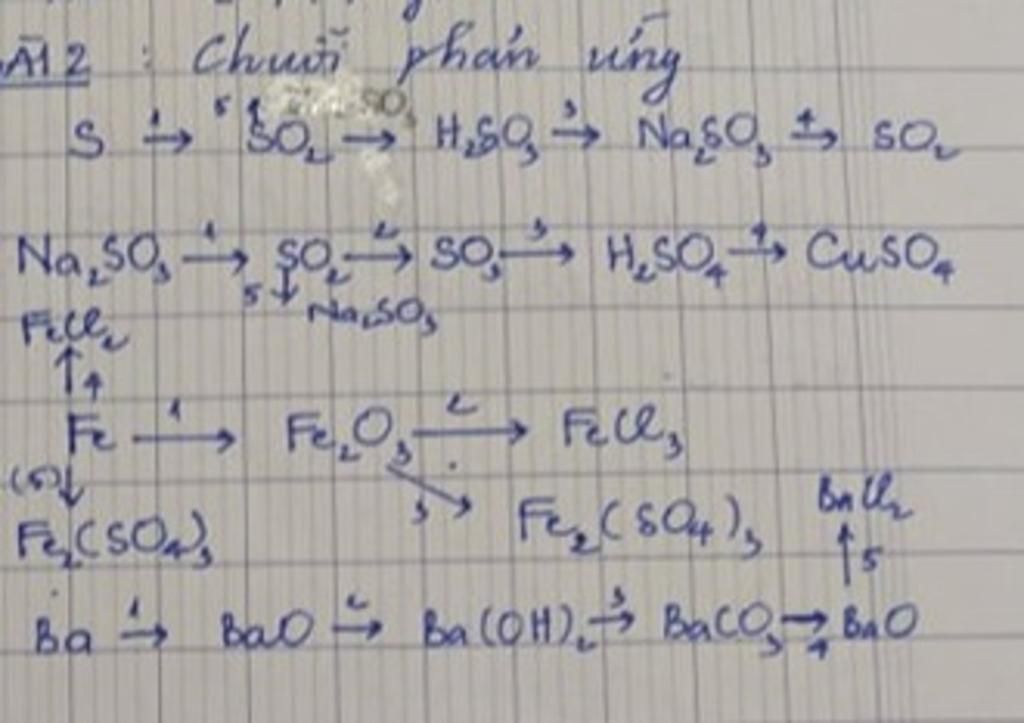 BÀI 2 : Chuỗi phản ứng
S →1 SO₂ → H₂SO₃ →3 Na₂SO₃ →4 SO₂
Na₂SO₃ →1 SO₂ →2 SO₃ →3 H₂SO₄ →4 CuSO₄
5 ↓ Na₂SO₃
FeCl₂
↑ 4
Fe →1 Fe₂O₃ →2 FeCl₃
(5) ↓ 3 ↘ BaCl₂
Fe₂(SO₄)₃ Fe₂(SO₄)₃ ↑ 5
Ba →1 BaO →2 Ba(OH)₂ →3 BaCO₃ →4 BaO